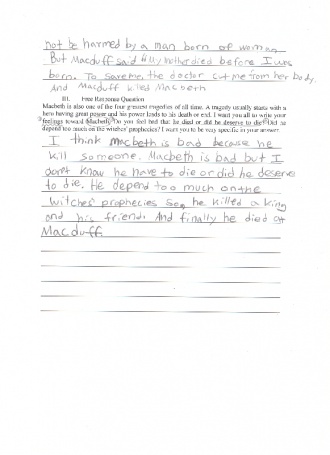 not be harmed by a man born of woman
But Macduff said "My mother died before I was
born. To save me, the doctor cut me from her body.
And Macduff killed Macbeth
III. Free Response Question
Macbeth is also one of the four greatest tragedies of all time. A tragedy usually starts with a
hero having great power and his power leads to his death or exil. I want you all to write your
feelings toward Macbeth. Do you feel bad that he died or did he deserve to die? Did he
depend too much on the witches' prophecies? I want you to be very specific in your answer.
I think Macbeth is bad because he
kill someone. Macbeth is bad but I
don't know he have to die or did he deserve
to die. He depend too much on the
witches' prophecies so, he killed a king
and his friend. And finally he died at
Macduff.